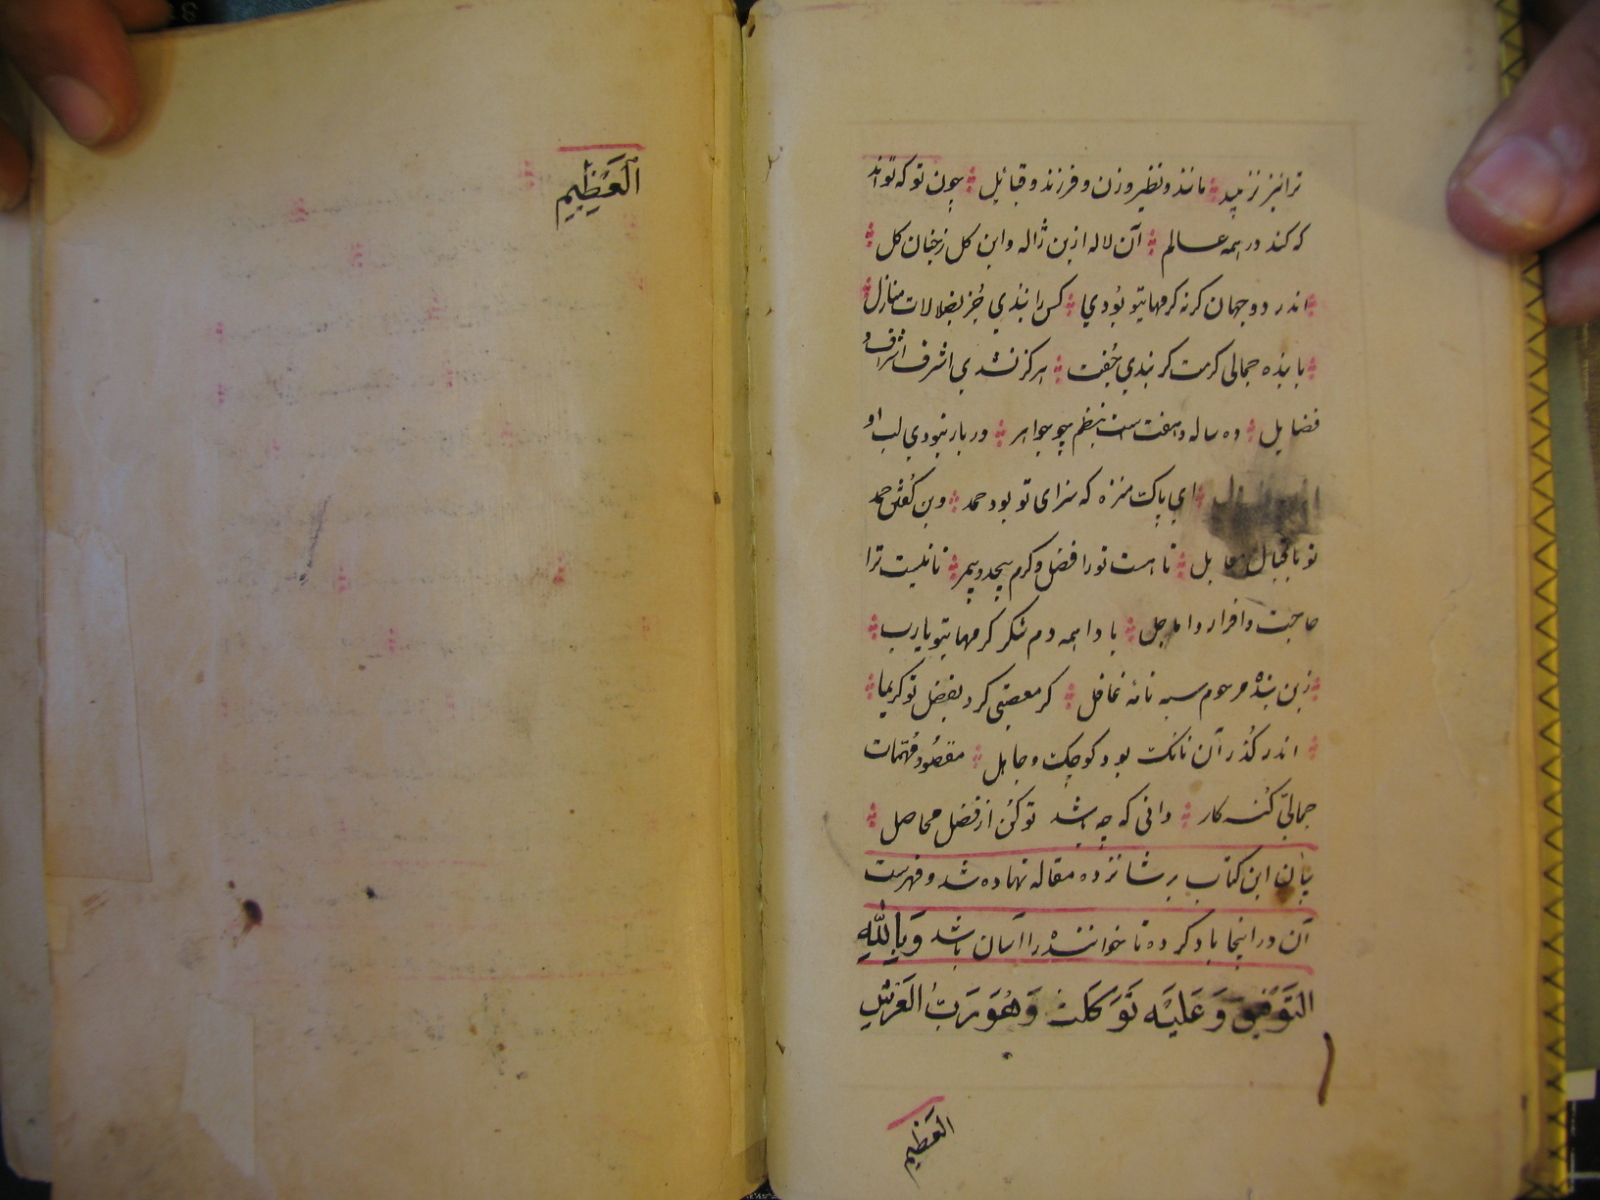 ترا نیز نزیبد مانند و نظیر و زن و فرزند و قبائل چون تو که تواند
که کند در همه عالم آن لاله ازین ژاله و این کل زیخان کل
اندر دو جهان کرنه کرمهای تو بودی کس را نبدی جز بضلالات منازل
با بنده جمالی کرمت کر نبدی جفت هرکز نشدی اشرف اشراف و
فضایل ده ساله و هفت است بنظم چو جواهر در بار نبودی لب او
ای پاکت منزه که سزای تو بود حمد وین کفتن حمد
تو باقبال قابل تا هست تو را فضل و کرم بیحد و بیمر تا نیست ترا
حاجت و افرار و امل بادا همه دم شکر کرمهای تو یا رب
زین بنده مرسوم سیه نامهٔ غافل کر معصیتی کرد بفضل تو کریما
اندر کذر آن نانکت بود کوچک و جاهل مقصود مهمات
جمالی کنه کار دانی که چه باشد تو کن از فضل محاصل
بیان این کتاب بر شانزده مقاله نهاده شد و فهرست
آن در اینجا یاد کرده تا خواننده را آسان باشد وَبِاللّٰهِ
التَوفیق وَعَلَیْه تَوَکَلت وَهُوَ رَبُ العَرْشِ
العَظِیمِ
العَظِیمِ